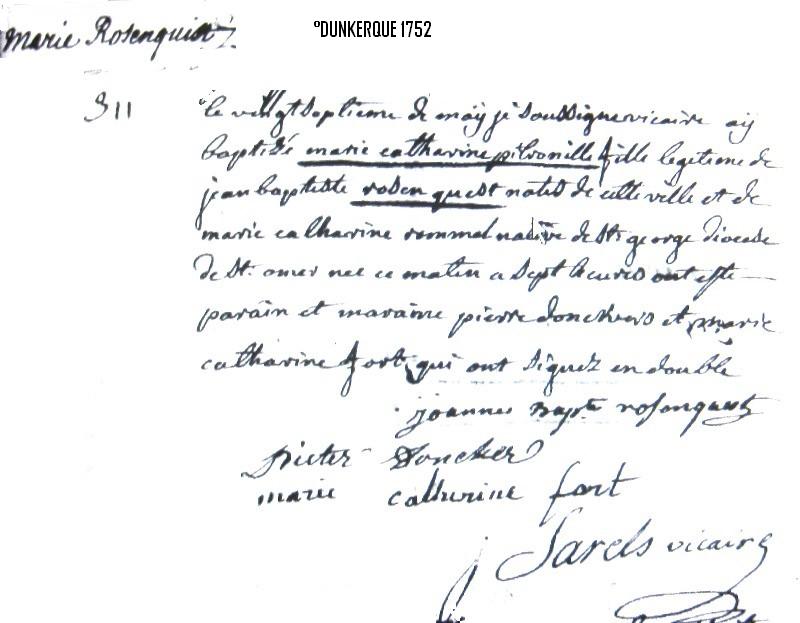 Marie Rosenquist
°DUNKERQUE 1752
311
le vingt septieme de may je soussigne vicaire ay
baptisé marie catharine pitronille fille legetime de
jean baptiste rosenquest natif de cette ville et de
marie catharine rommel native de St: george diocese
de St: omer nee ce matin a sept heures ont este
parain et maraine pierre donckers et marie
catharine fort qui ont signez en double
joannes Bapte rosenquest
Pieter Doncker
marie catherine fort
Sarels vicaire